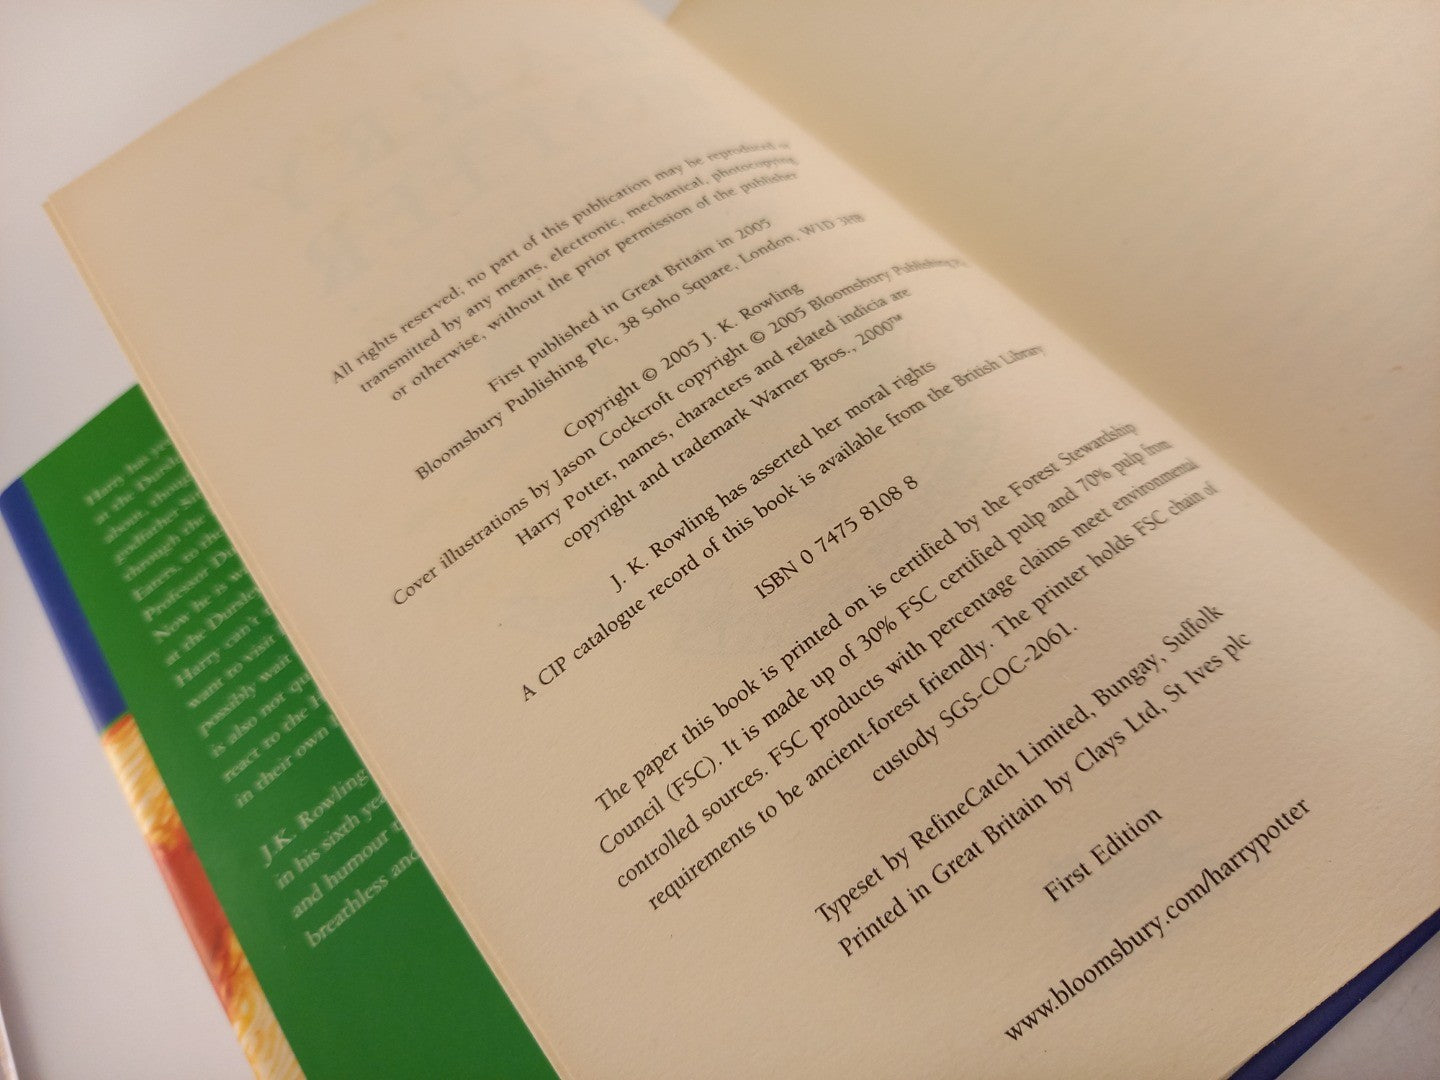 All rights reserved; no part of this publication may be reproduced or
transmitted by any means, electronic, mechanical, photocopying
or otherwise, without the prior permission of the publisher
First published in Great Britain in 2005
Bloomsbury Publishing Plc, 38 Soho Square, London, W1D 3HB
Copyright © 2005 J. K. Rowling
Cover illustrations by Jason Cockcroft copyright © 2005 Bloomsbury Publishing
Harry Potter, names, characters and related indicia are
copyright and trademark Warner Bros., 2000™
J. K. Rowling has asserted her moral rights
A CIP catalogue record of this book is available from the British Library
ISBN 0 7475 8108 8
The paper this book is printed on is certified by the Forest Stewardship
Council (FSC). It is made up of 30% FSC certified pulp and 70% pulp from
controlled sources. FSC products with percentage claims meet environmental
requirements to be ancient-forest friendly. The printer holds FSC chain of
custody SGS-COC-2061.
Typeset by RefineCatch Limited, Bungay, Suffolk
Printed in Great Britain by Clays Ltd, St Ives plc
First Edition
www.bloomsbury.com/harrypotter
Harry has
at the Dursl
about, thoug
godfather
through the
Eaters, to the
Professor
Now he is w
at the Dursley
Harry can't
want to visit
possibly wait
is also not qu
react to the
in their own
J.K. Rowling
in his sixth ye
and humour
breathless and